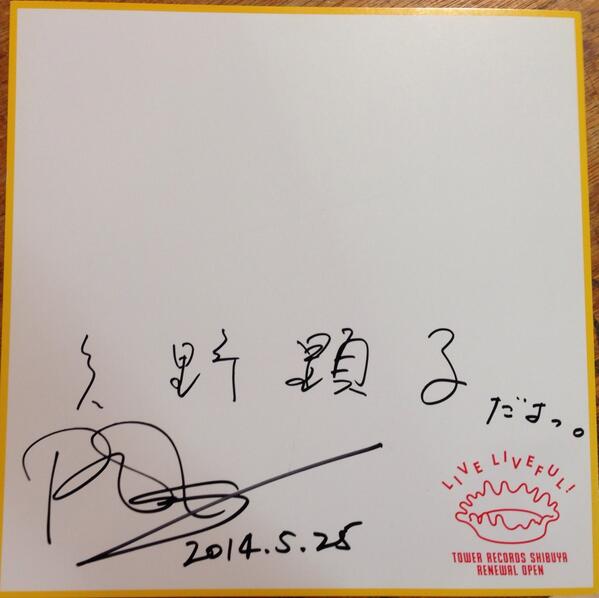 矢野顕子
だよっ。
2014.5.25
LIVE LIVEFUL!
TOWER RECORDS SHIBUYA
RENEWAL OPEN